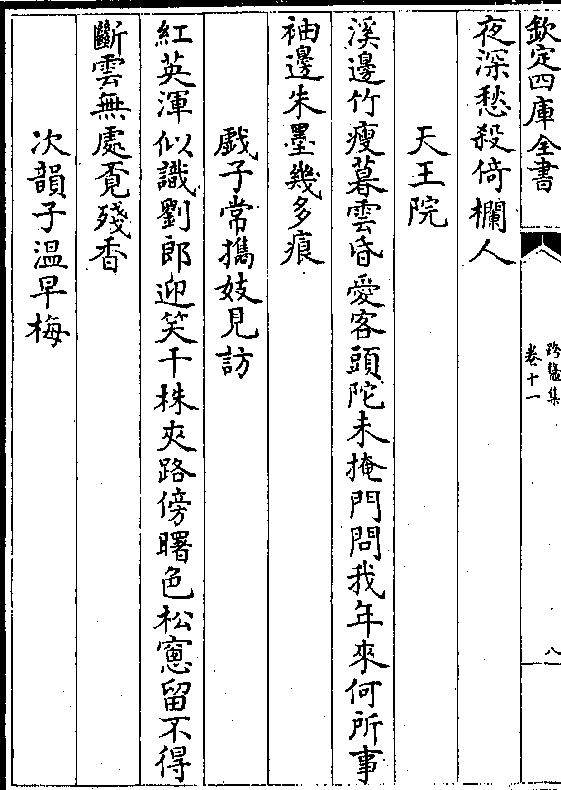 欽定四庫全書
跨鼇集
卷十一
八
夜深愁殺倚欄人
天王院
溪邊竹瘦暮雲昏愛客頭陀未掩門問我年來何所事
袖邊朱墨幾多痕
戯子常攜妓見訪
紅英渾似識劉郎迎笑千株夾路傍曙色松窻留不得
斷雲無處覔殘香
次韻子温早梅